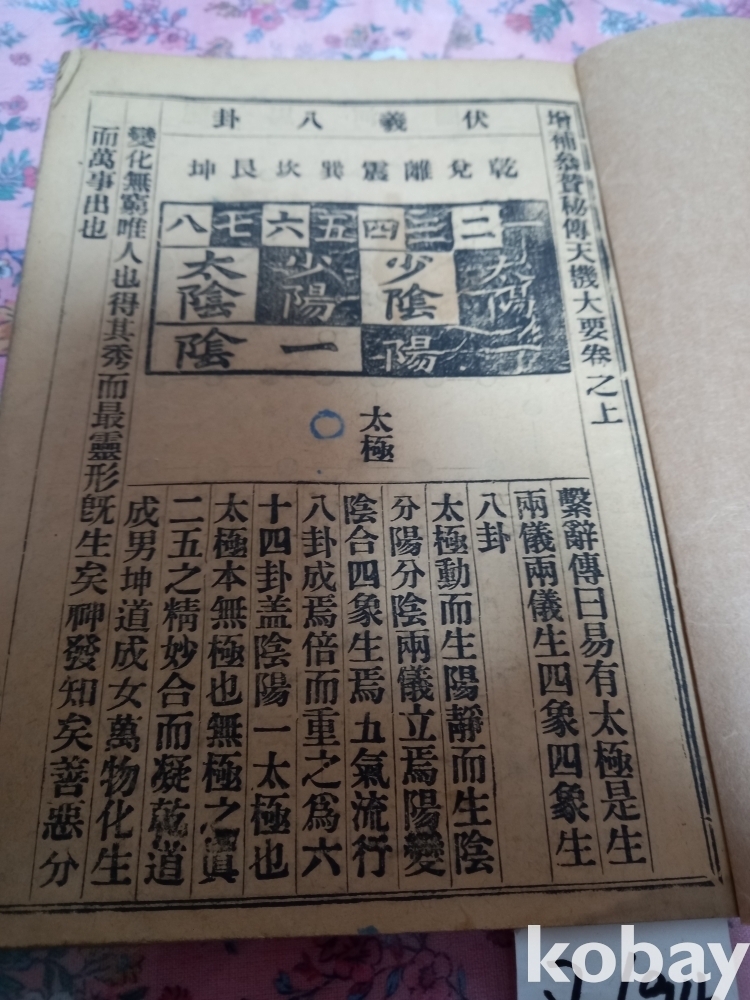 增補叅贊秘傳天機大要卷之上
伏羲八卦
乾兌離震巽坎艮坤
一二三四五六七八
太陽 少陰 少陽 太陰
一陽 一陰
太極
繫辭傳曰易有太極是生
兩儀兩儀生四象四象生
八卦
太極動而生陽靜而生陰
分陽分陰兩儀立焉陽變
陰合四象生焉五氣流行
八卦成焉倍而重之爲六
十四卦盖陰陽一太極也
太極本無極也無極之眞
二五之精妙合而凝乾道
成男坤道成女萬物化生
變化無窮唯人也得其秀而最靈形旣生矣神發知矣善惡分
而萬事出也
kobay